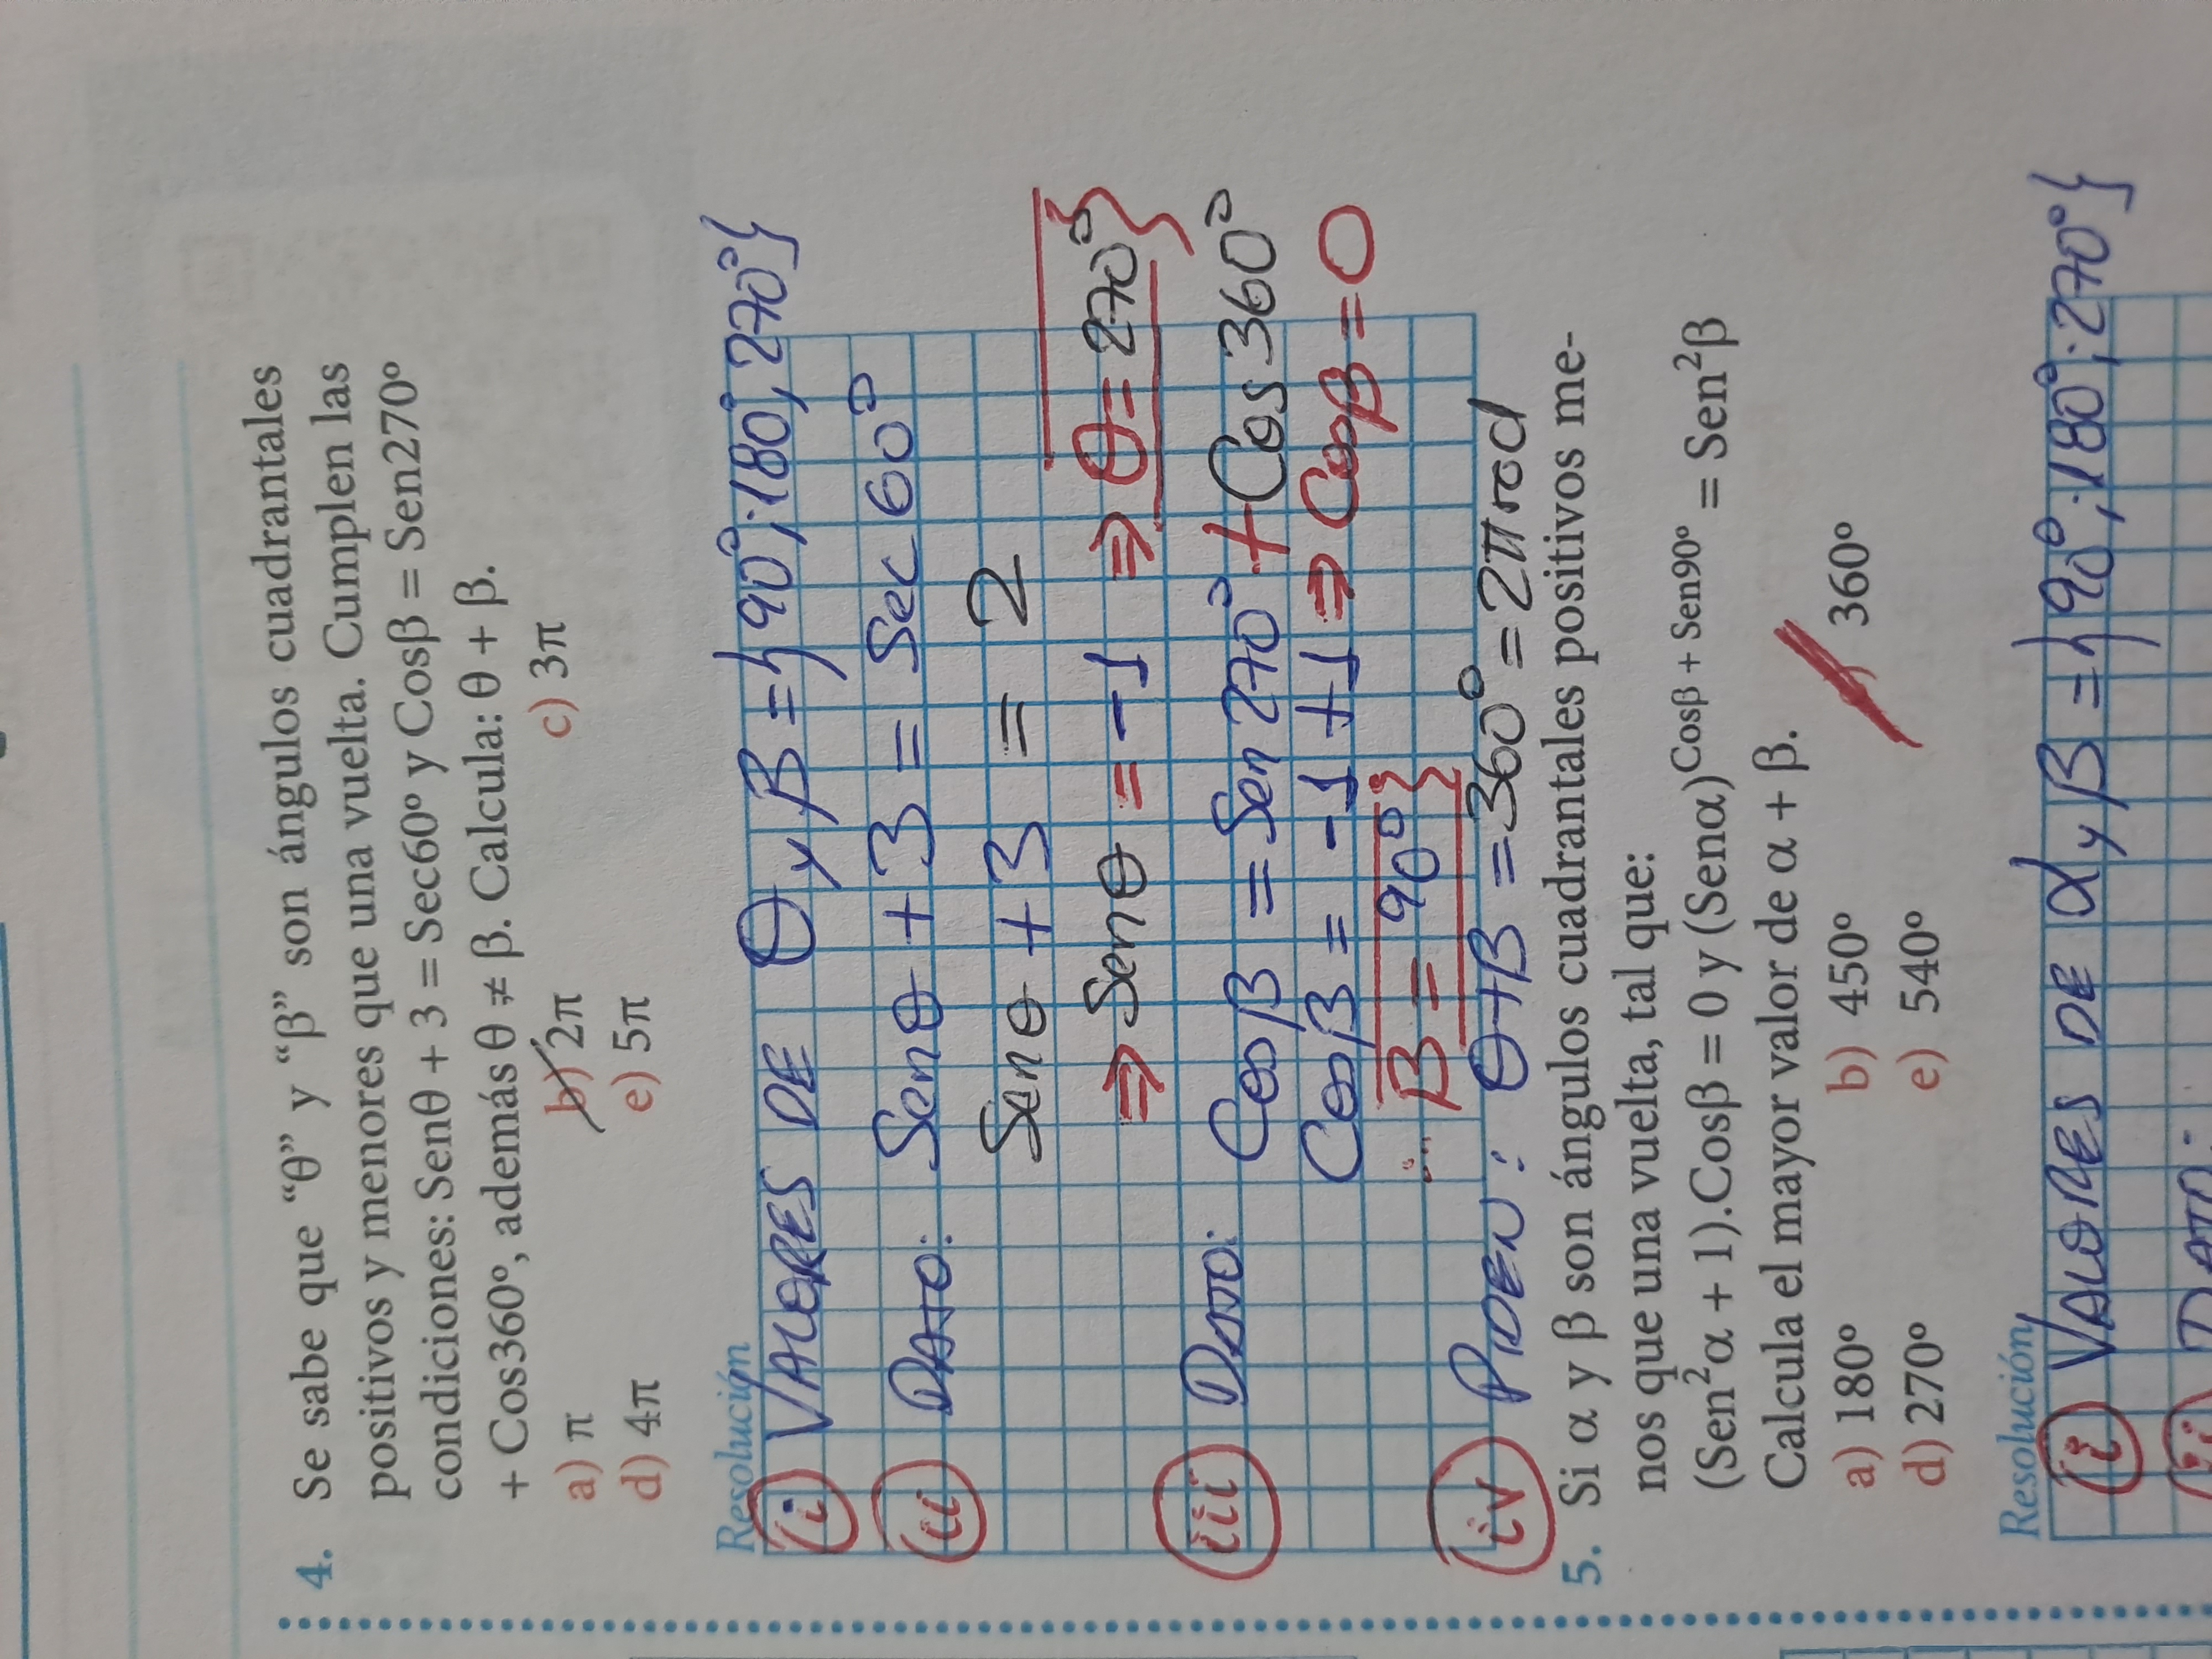 4. Se sabe que “θ” y “β” son ángulos cuadrantales
positivos y menores que una vuelta. Cumplen las
condiciones: Senθ + 3 = Sec60º y Cosβ = Sen270º
+ Cos360º, además θ ≠ β. Calcula: θ + β.
a) π b) 2π c) 3π
d) 4π e) 5π
Resolución
i VALORES DE θ y β = {90°; 180°, 270°}
ii DATO: Senθ + 3 = Sec 60°
Senθ + 3 = 2
⇒ Senθ = -1 ⇒ θ = 270°}
iii DATO: Cosβ = Sen 270° + Cos 360°
Cosβ = -1 +1 ⇒ Cosβ = 0
∴ β = 90°}
iv PIDEN: θ+β = 360° = 2π rad
5. Si α y β son ángulos cuadrantales positivos me-
nos que una vuelta, tal que:
(Sen²α + 1).Cosβ = 0 y (Senα)^Cosβ + Sen90º = Sen²β
Calcula el mayor valor de α + β.
a) 180º b) 450º 360º
d) 270º e) 540º
Resolución
i VALORES DE α y β = {90°; 180°; 270°}
ii DATO: